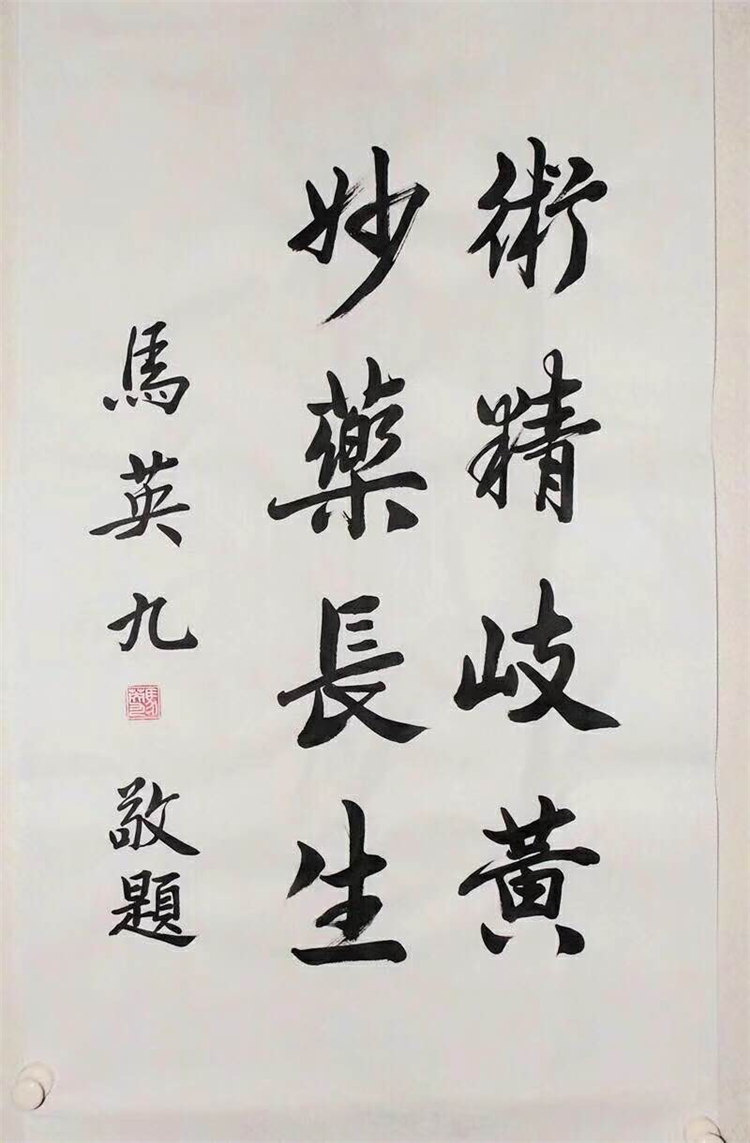 術精歧黃
妙藥長生
馬英九
敬題